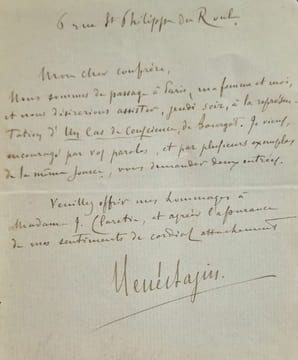 6 rue St Philippe du Roule.
Mon cher confrère,
Nous sommes de passage à Paris, ma femme et moi,
et nous désirerions assister, jeudi soir, à la représen-
tation d'Un Cas de Conscience, de Bourget. Je viens,
encouragé par vos paroles, et par plusieurs exemples
de la même source, vous demander deux entrées.
Veuillez offrir mes hommages à
Madame J. Claretie, et agréer l'assurance
de mes sentiments de cordial attachement
René Bazin.